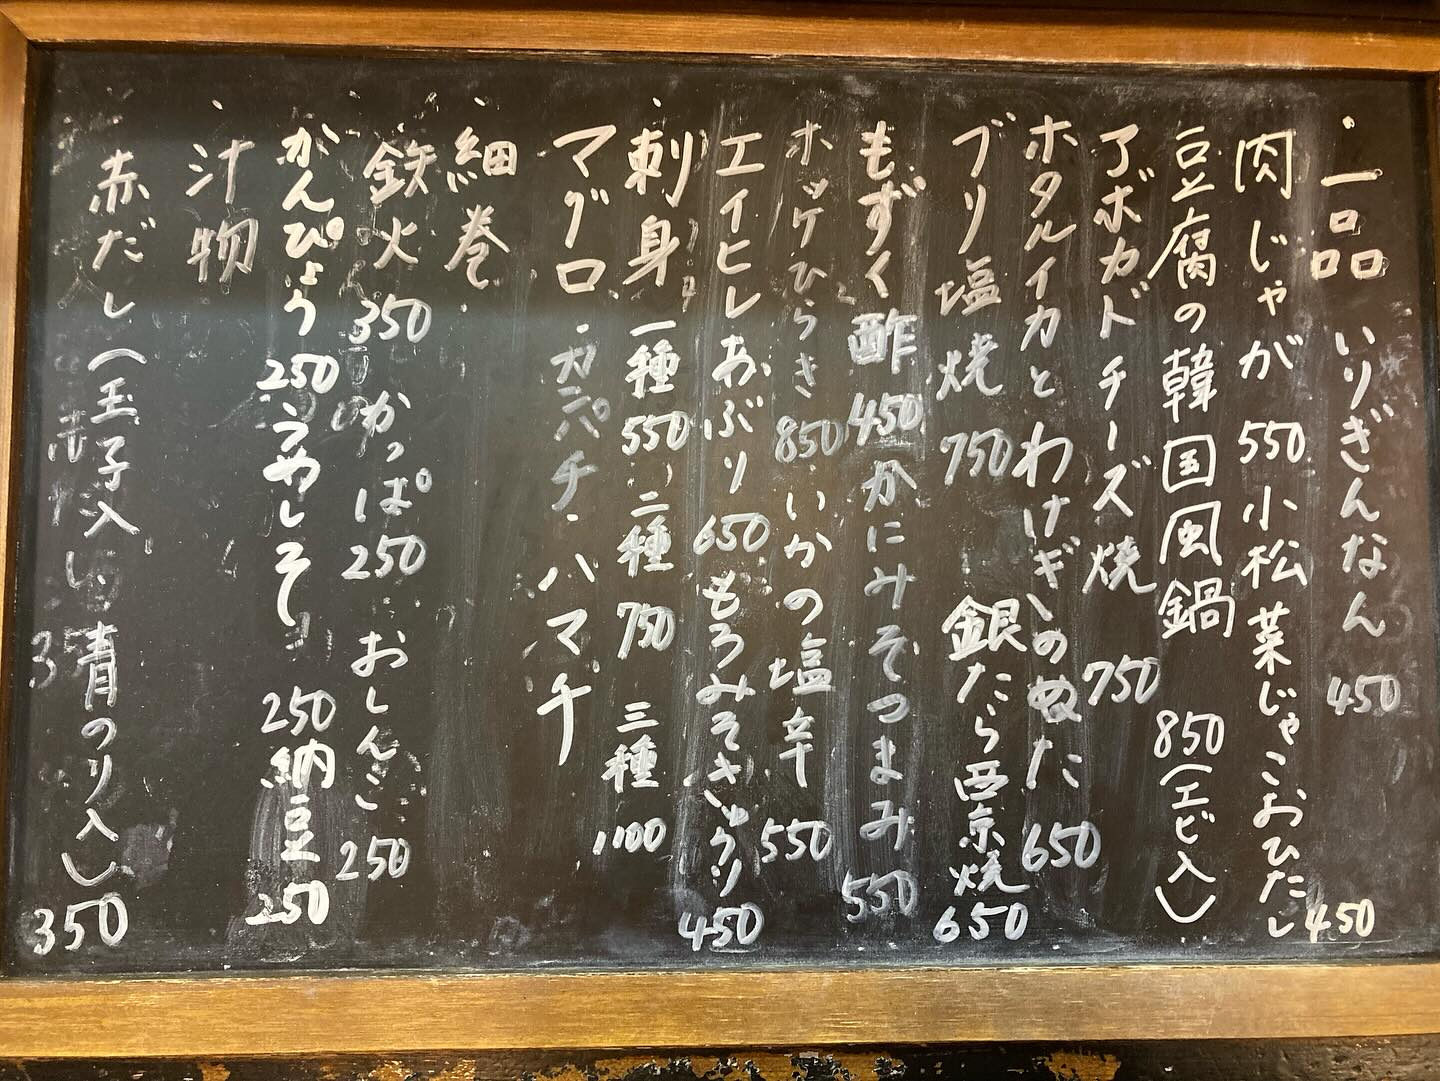 一品 いりぎんなん 450
肉じゃが 550 小松菜じゃこおひたし 450
豆腐の韓国風鍋 850(エビ入り)
アボカドチーズ焼 750
ホタルイカとわけぎのぬた 650
ブリ塩焼 750 銀たら西京焼 650
もずく酢 450 かにみそつまみ 550
ホッケひらき 850 いかの塩辛 550
エイヒレあぶり 650 もろみそきゅうり 450
刺身 一種 550 二種 750 三種 1100
マグロ・カンパチ・ハマチ
細巻
鉄火 350 かっぱ 250 おしんこ 250
かんぴょう 250 うめしそ 250 納豆 250
汁物
赤だし(玉子入り、青のり入り) 350